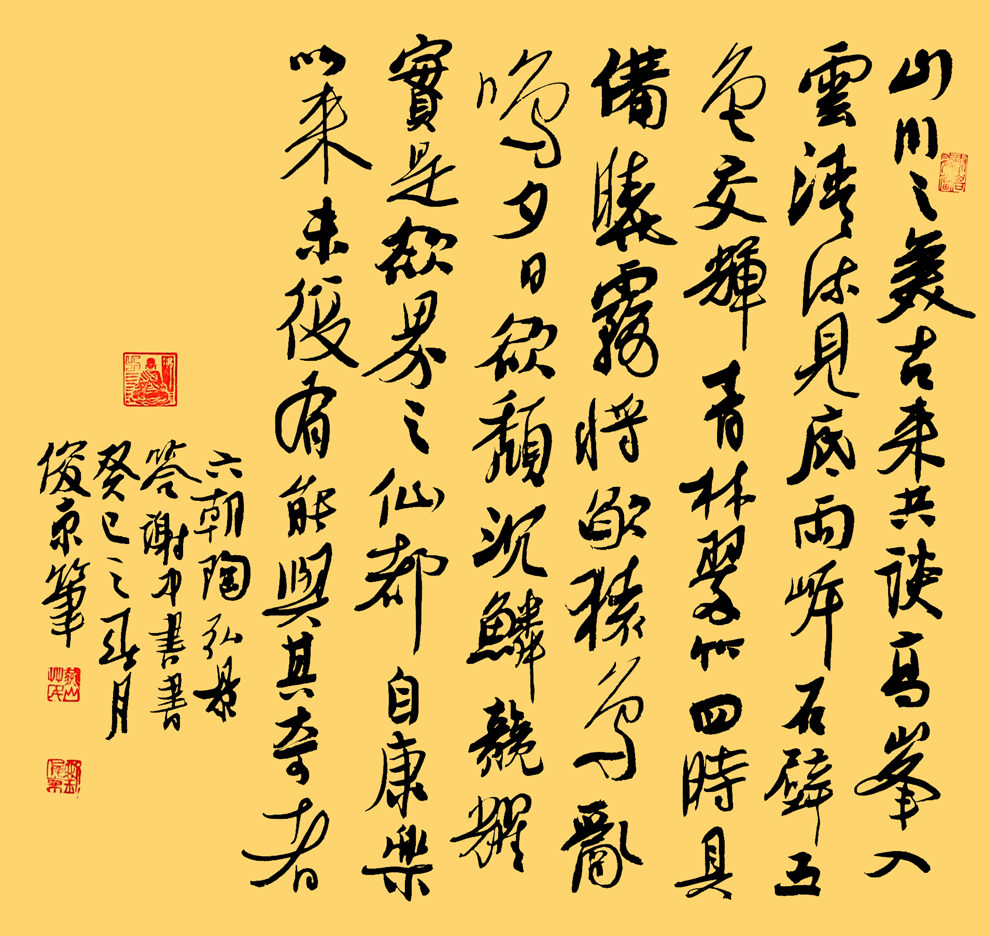 山川之美古来共談高峯入
雲清流見底兩岸石壁五
色交輝青林翠竹四時具
備曉霧將歇猿鳥亂
鳴夕日欲頹沉鱗競耀
實是欲界之仙都自康樂
以来未復有能與其奇者
六朝陶弘景
答謝中書書
癸巳之月
俊京筆